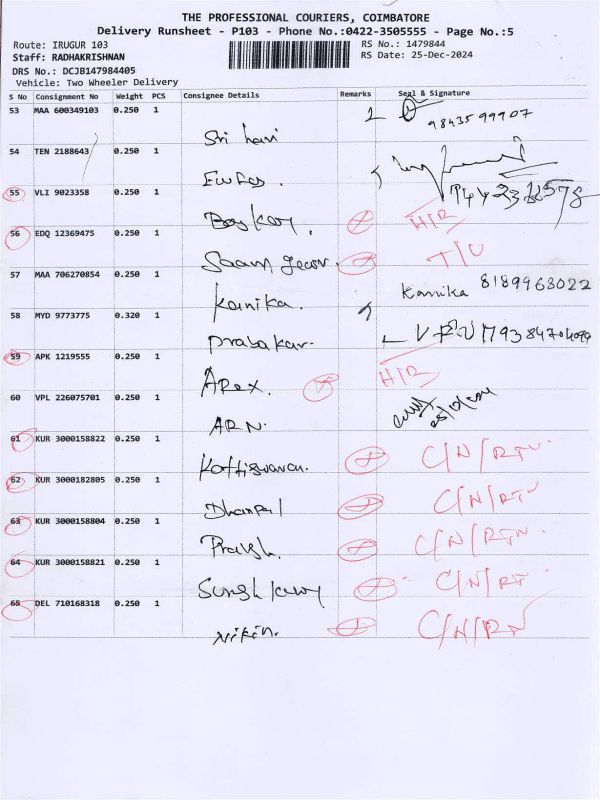 THE PROFESSIONAL COURIERS, COIMBATORE
Delivery Runsheet - P103 - Phone No.:0422-3505555 - Page No.:5
Route: IRUGUR 103
RS No.: 1479844
Staff: RADHAKRISHNAN
RS Date: 25-Dec-2024
DRS No.: DCJB147984405
Vehicle: Two Wheeler Delivery
S No Consignment No Weight PCS Consignee Details Remarks Seal & Signature
53 MAA 600349103 0.250 1
9843599907
Sri hari
54 TEN 2188643 0.250 1
55 VLI 9023358 0.250 1
H/R
56 EDQ 12369475 0.250 1
T/U
57 MAA 706270854 0.250 1
Kanika 8189963022
Kanika.
58 MYD 9773775 0.320 1
Prabakar.
59 APK 1219555 0.250 1
H/R
APex
60 VPL 226075701 0.250 1
ARN.
61 KUR 3000158822 0.250 1
C/N/RTN
62 KUR 3000182805 0.250 1
C/N/RTN
63 KUR 3000158804 0.250 1
C/N/RTN
64 KUR 3000158821 0.250 1
C/N/RT
65 DEL 710168318 0.250 1
C/N/RTN
Nikin.